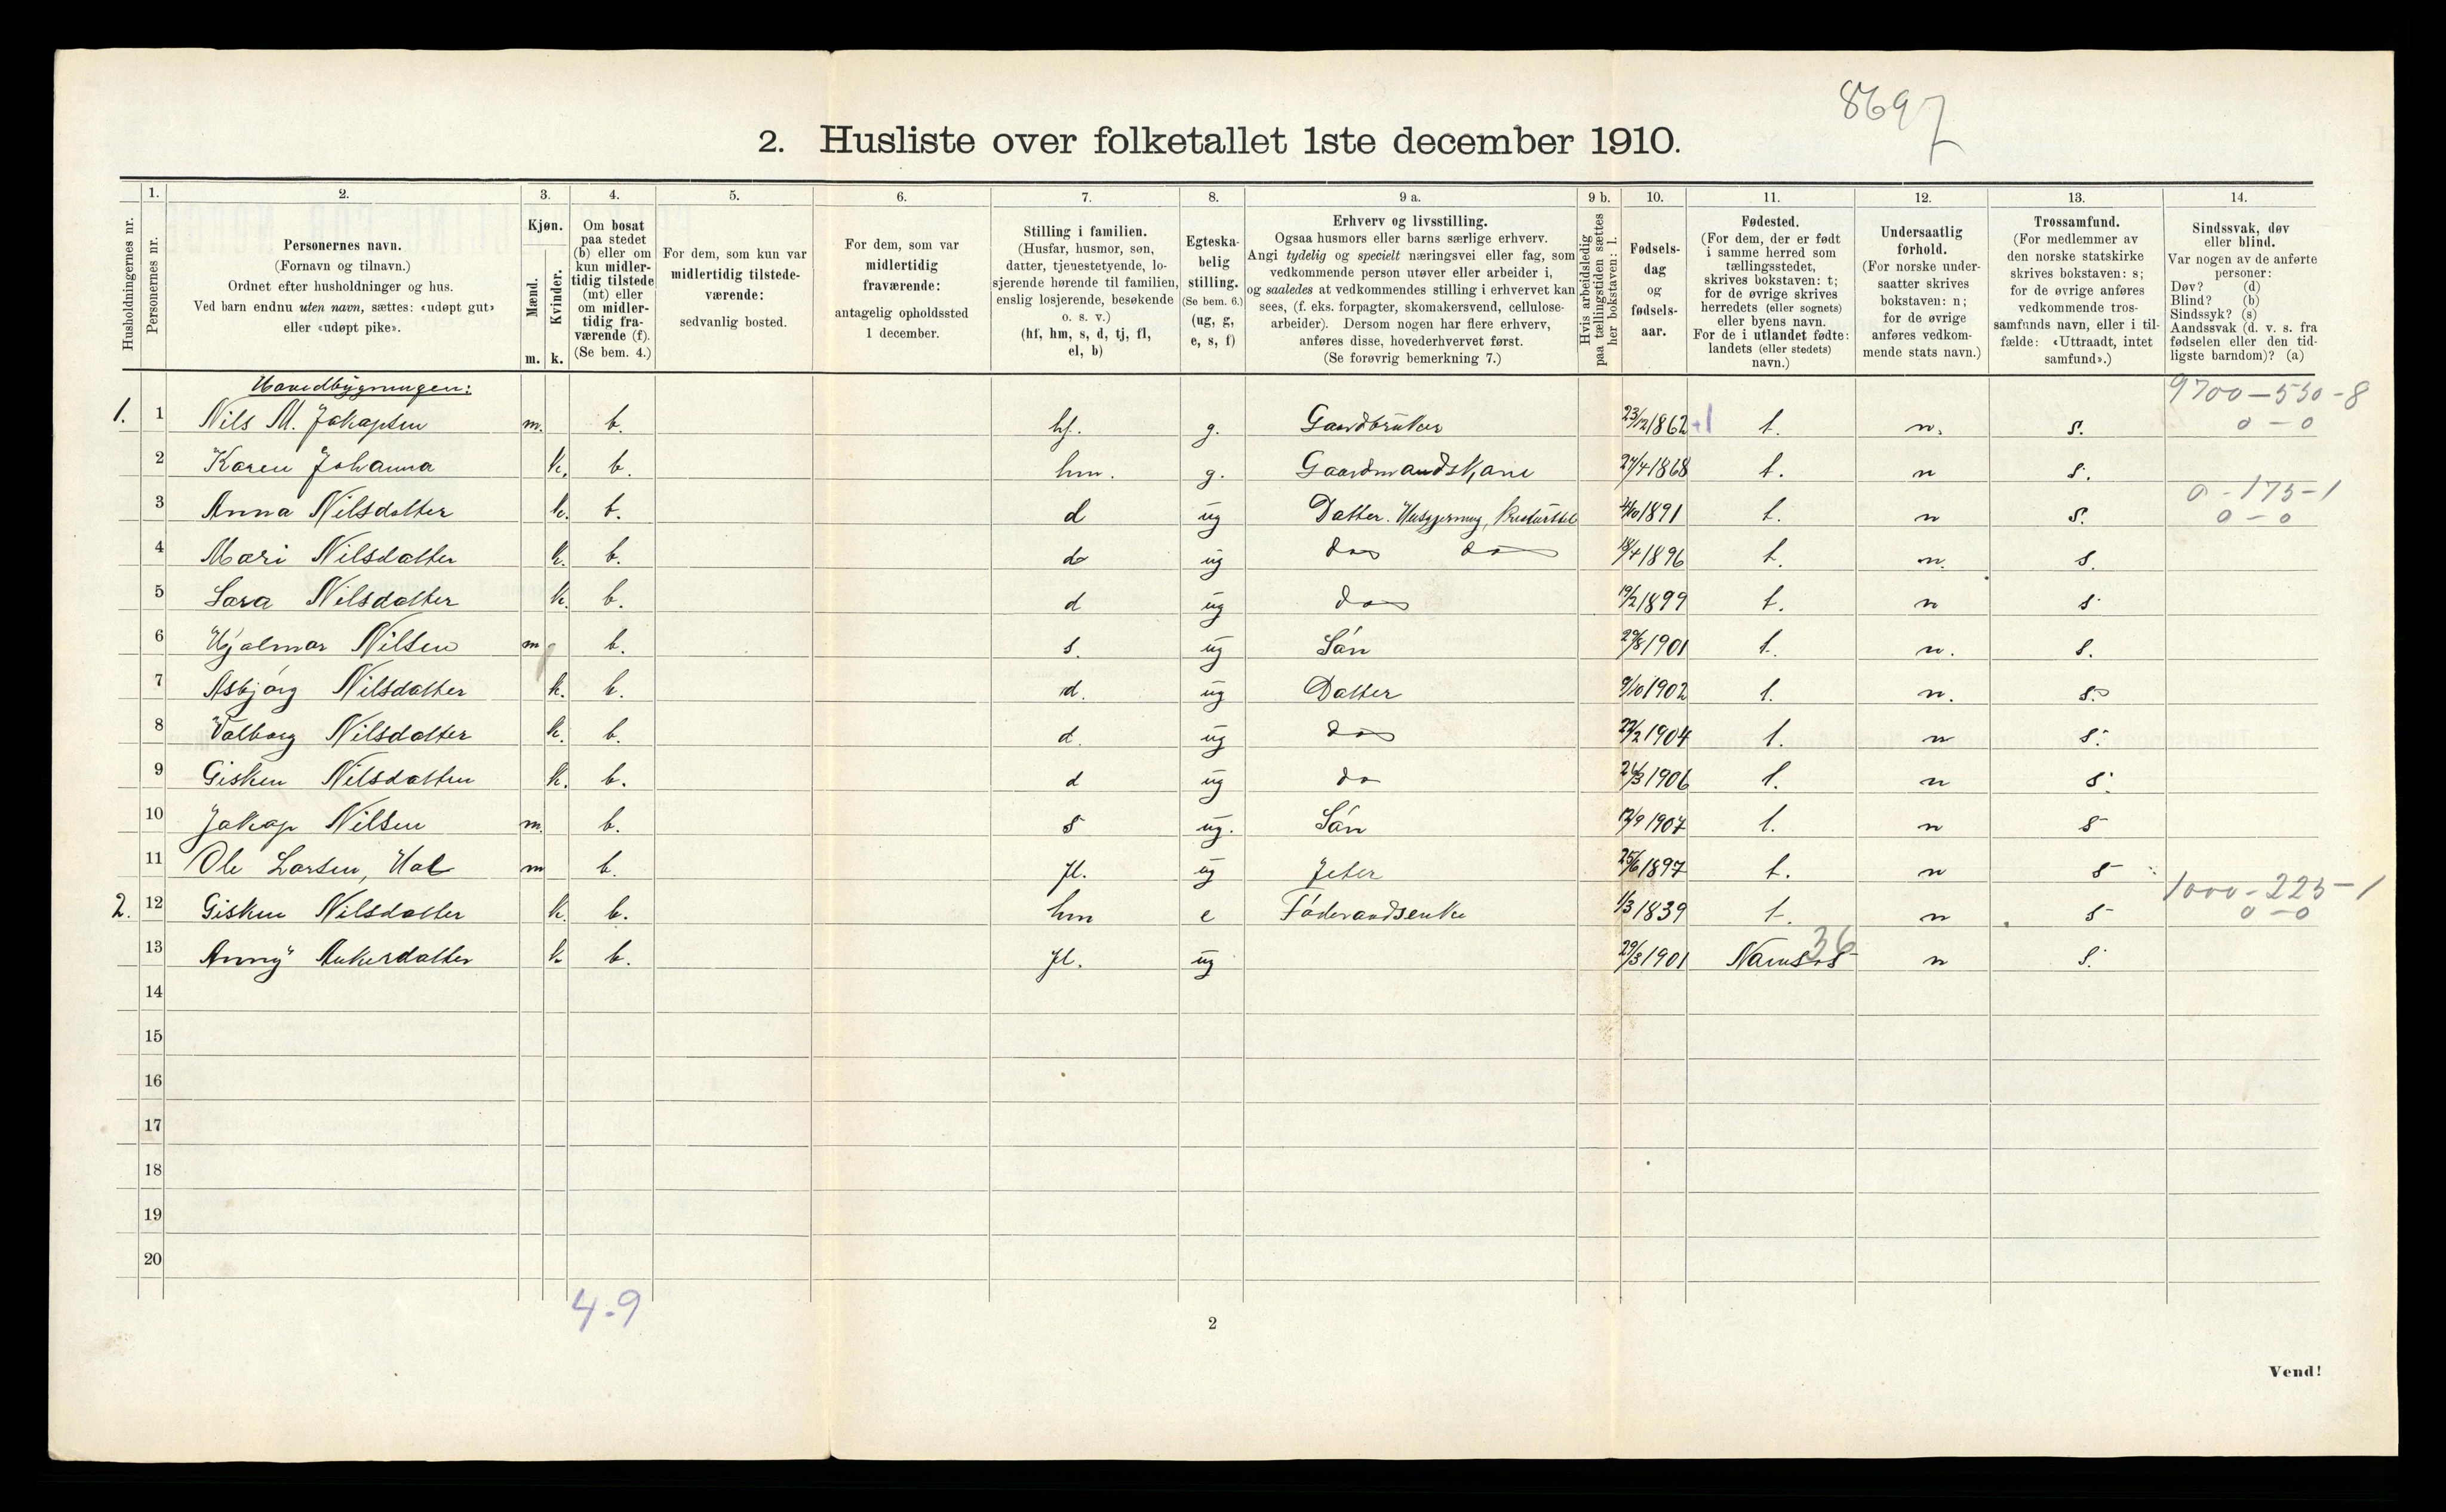 8697
2. Husliste over folketallet 1ste december 1910.
Husholdningernes nr.
1.
Personernes nr.
2.
Personernes navn.
(Fornavn og tilnavn.)
Ordnet efter husholdninger og hus.
Ved barn endnu uten navn, sættes: «udøpt gut»
eller «udøpt pike».
3.
Kjøn.
Mænd.
Kvinder.
m. k.
4.
Om bosat
paa stedet
(b) eller om
kun midler-
tidig tilstede
(mt) eller
om midler-
tidig fra-
værende (f).
(Se bem. 4.)
5.
For dem, som kun var
midlertidig tilstede-
værende:
sedvanlig bosted.
6.
For dem, som var
midlertidig
fraværende:
antagelig opholdssted
1 december.
7.
Stilling i familien.
(Husfar, husmor, søn,
datter, tjenestetyende, lo-
sjerende hørende til familien,
enslig losjerende, besøkende
o. s. v.)
(hf, hm, s, d, tj, fl,
el, b)
8.
Egteska-
belig
stilling.
(Se bem. 6.)
(ug, g,
e, s, f)
9 a.
Erhverv og livsstilling.
Ogsaa husmors eller barns særlige erhverv.
Angi tydelig og specielt næringsvei eller fag, som
vedkommende person utøver eller arbeider i,
og saaledes at vedkommendes stilling i erhvervet kan
sees, (f. eks. forpagter, skomakersvend, cellulose-
arbeider). Dersom nogen har flere erhverv,
anføres disse, hovederhvervet først.
(Se forøvrig bemerkning 7.)
9 b.
Hvis arbeidsledig
paa tællingstiden sættes
her bokstaven: l.
10.
Fødsels-
dag
og
fødsels-
aar.
11.
Fødested.
(For dem, der er født
i samme herred som
tællingsstedet,
skrives bokstaven: t;
for de øvrige skrives
herredets (eller sognets)
eller byens navn.
For de i utlandet fødte:
landets (eller stedets)
navn.)
12.
Undersaatlig
forhold.
(For norske under-
saatter skrives
bokstaven: n;
for de øvrige
anføres vedkom-
mende stats navn.)
13.
Trossamfund.
(For medlemmer av
den norske statskirke
skrives bokstaven: s;
for de øvrige anføres
vedkommende tros-
samfunds navn, eller i til-
fælde: «Uttraadt, intet
samfund».)
14.
Sindssvak, døv
eller blind.
Var nogen av de anførte
personer:
Døv? (d)
Blind? (b)
Sindssyk? (s)
Aandssvak (d. v. s. fra
fødselen eller den tid-
ligste barndom)? (a)
Hovedbygningen:
9700-550-8
1. 1 Nils M. Jakapsen m. b. hf. g. Gaardbruker 23/12 1862 +1 t. n. s. 0-0
2 Karen Johanna k. b. hm. g. Gaardmandskone 27/4 1868 t. n s.
0-175-1
3 Anna Nilsdatter k. b. d ug Datter. Husgjerning, 1891 t. n s. 0-0
4 Mari Nilsdatter k. b. d ug do do 18/4 1896 t. n. s.
5 Sara Nilsdatter k. b. d ug do 19/2 1899 t. n s
6 Hjalmar Nilsen m b. s. ug Són 29/8 1901 t. n. s.
7 Asbjórg Nilsdatter k. b. d. ug Datter 9/10 1902 t. n. s.
8 Valborg Nilsdatter k. b. d. ug do 22/2 1904 t. n s.
9 Gisken Nilsdatter k. b. d ug do 26/3 1906 t. n s.
10 Jakap Nilsen m. b. s ug. Són 12/9 1907 t. n s
11 Ole Larsen, Hal m b. fl. ug Jeter 25/6 1897 t. n s
1000-225-1
2. 12 Gisken Nilsdatter k. b. hm e Fóderaadsenke 1/3 1839 t. n s 0-0
13 Anny Ankerdatter k. b. fl. ug 29/3 1901 Namsos 36 n s.
14
15
16
17
18
19
20
4-9
2
Vend!